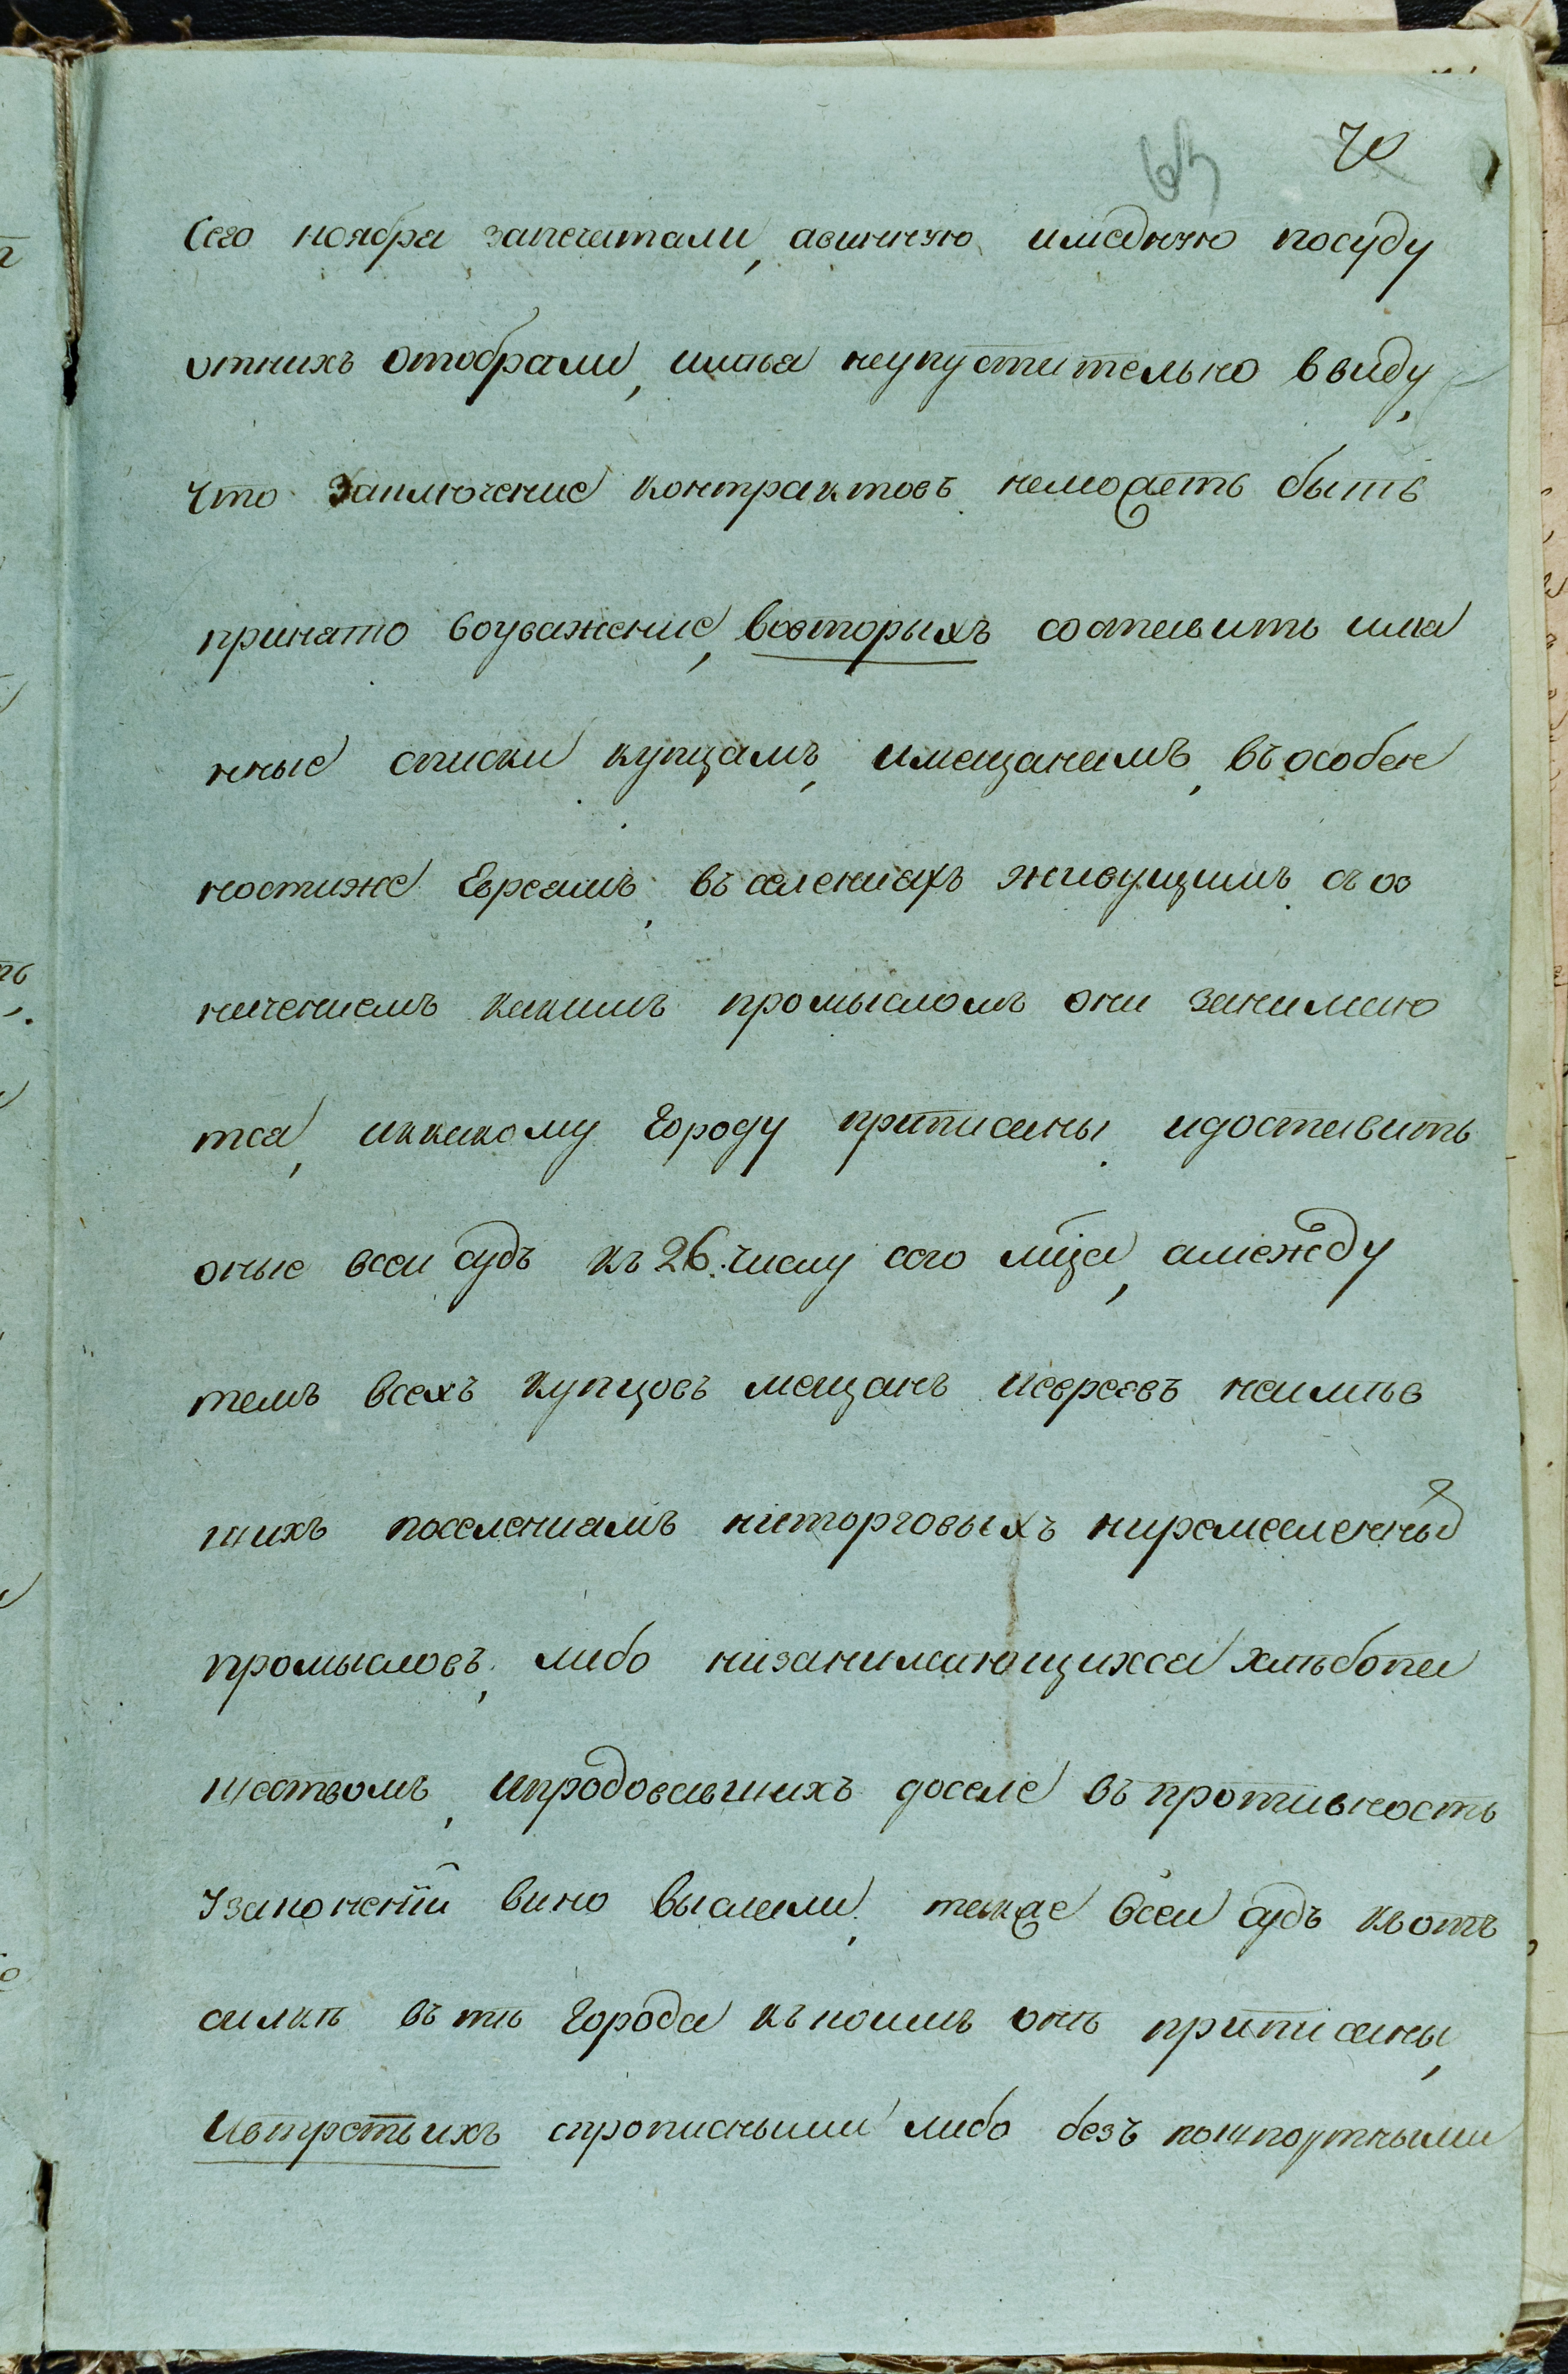 65 70
Сего ноября запечатали, авинную имедную посуду
отнихъ отобрали, имѣя неупустительно ввиду,
что заключение контрактовъ неможетъ быть
принято воуважение, вовторыхъ составить имя
нные списки купцамъ, имещанамъ, въособен
ностиже Евреямъ, въселенияхъ живущимъ съоз
начениемъ какимъ промысломъ они занимаю
тся, иккакому городу приписаны идоставить
оные всеи судъ къ 26. числу сего мца, амежду
темъ всехъ купцовъ мещанъ иевреевъ неимѣв
шихъ поселениямъ ниторговыхъ ниремесленны
промысловъ, либо низанимающихся хлѣбопа
шествомъ, ипродовавшихъ доселе въпротивность
Узаконенїи вино выслали, также всеи судъ къотъ
силкѣ въ тѣ города къ коимъ онѣ приписаны,
ивтретьихъ спрописными либо безъ пошпортными